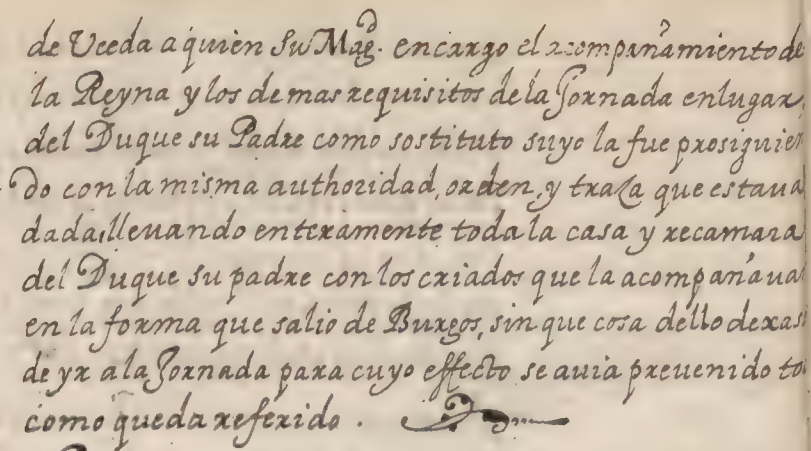 de Uceda a quien su Mag.d encargo el acompañamiento de
la Reyna y los demas requisitos de la Jornada en lugar,
del Duque su Padre como sostituto suyo la fue prosiguien
do con la misma authoridad, orden, y traça que estaua
dada, lleuando enteramente toda la casa y recamara
del Duque su padre con los criados que la acompañaua
en la forma que salio de Burgos, sin que cosa dello dexas
de yr a la Jornada para cuyo effecto se auia preuenido to
como queda referido .